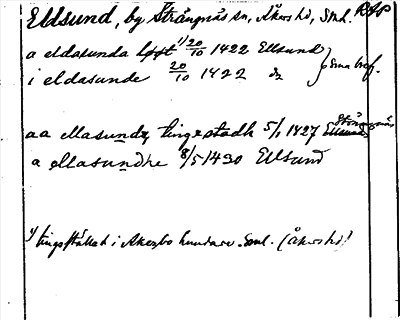 Ellsund, by Strängnäs sn, Åkers hd, Sml. RSP
a eldasunda 1) 20/10 1422 Ellsund
i eldasunde 20/10 1422 do } sma bref.
aa ellasunde tingestadh 5/1 1427 Strängnäs
a ellasundhe 8/5 1430 Ellsund
1) tingsstället i Åkerbo hundare. Sml. (Åkers hd)